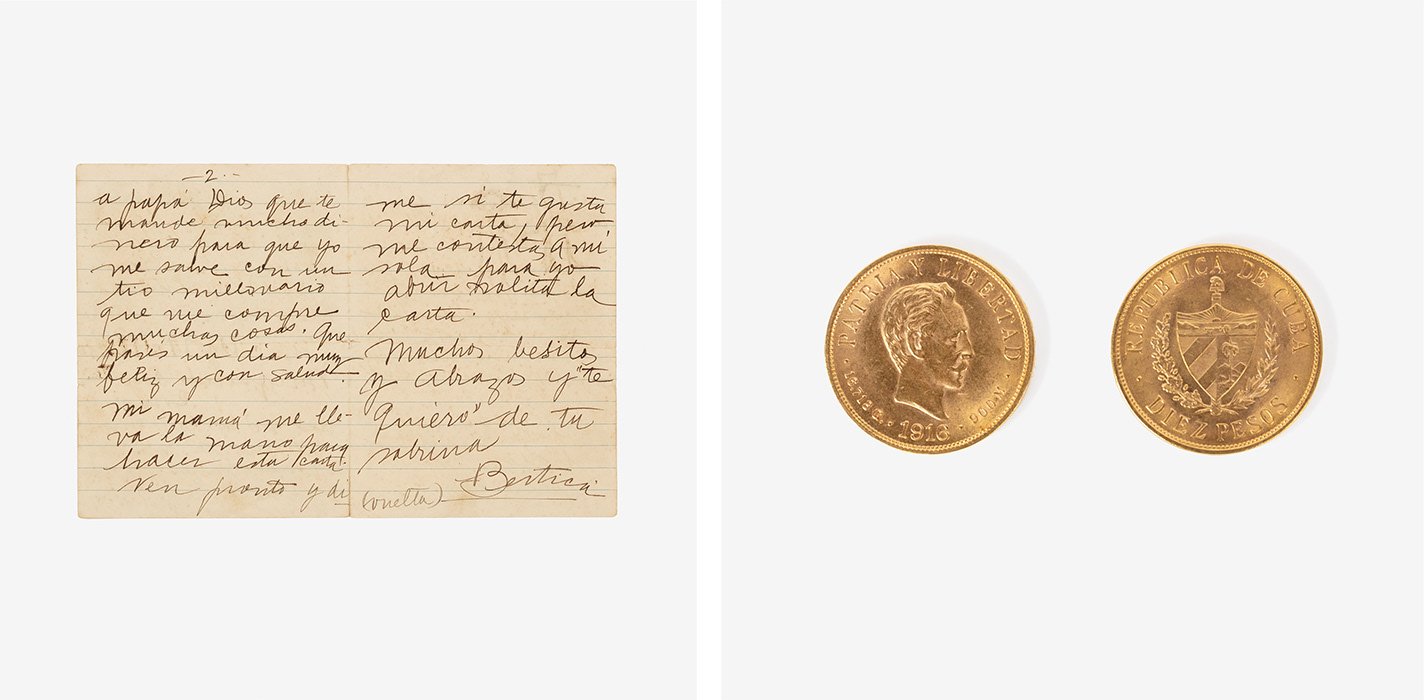 -2.-
a papá Dios que te
mande mucho di-
nero para que yo
me salve con un
tio millonario
que me compre
muchas cosas. Que
pases un dia muy
feliz y con salud.
Mi mamá me lle-
va la mano para
hacer esta carta.
Ven pronto y di-
me si te gusta
mi carta, pero
me contestas a mi
sola para yo
abrir solita la
carta.
Muchos besitos
y abrazos y "te
quiero" de tu
sobrina
Bertica
(vuelta)
PATRIA Y LIBERTAD
1916
REPUBLICA DE CUBA
DIEZ PESOS